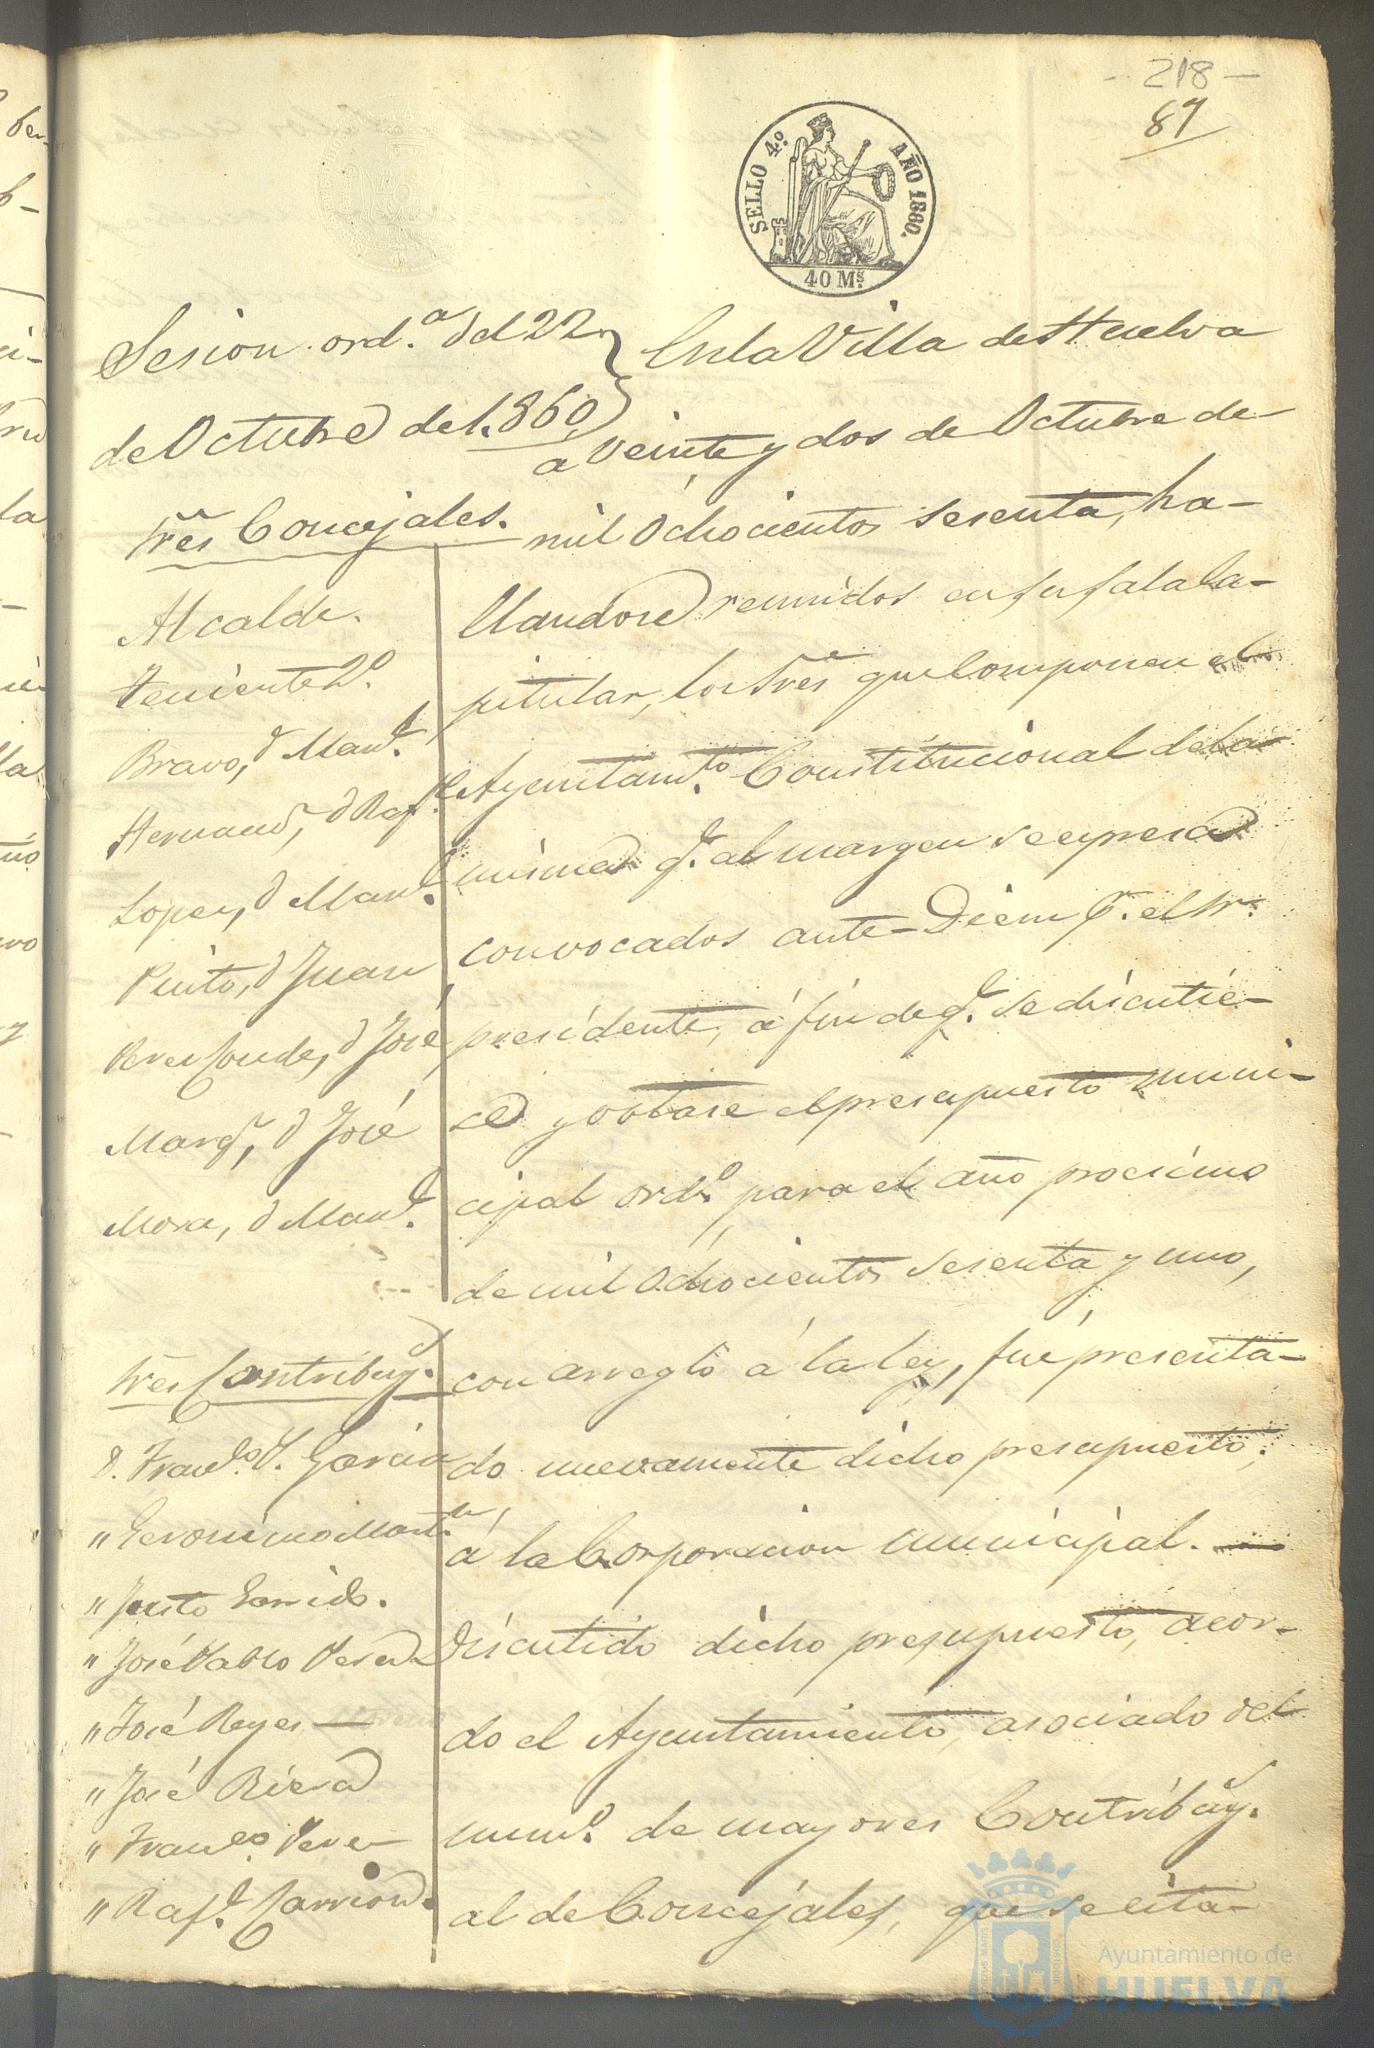 - 218 -
87
SELLO 4.º AÑO 1860.
40 Ms.
Sesion ord.a del 22
de Octubre de 1.860,
Sres Concejales.
Alcalde.
Teniente 2º.
Bravo, d Manl.
Hernandz, d Rafl.
Lopez, d Manl.
Pinto, d Juan
Perez Conde, d José
Marqz, d José
Mora, d Manl.
Sres Contribuy.s
D. Franco. V. Garcia
" Geronimo Martn.
" Justo Garrido.
" José Pablo Perez
" José Reyes
" José Riera
" Franco. Perez
" Rafl. Carrion.
En la Villa de Huelva
a veinte y dos de Octubre de
mil ochocientos sesenta, ha-
llandose reunidos en su sala Ca-
pitular, los Sres que Componen el
Ayuntamto. Constitucional de la
misma q. al margen se espresa
convocados ante-Diem p.r el Sr.
presidente, á fin de q. se discutie-
se y votase el presupuesto muni-
cipal ordo. para el año procsimo
de mil ochocientos sesenta y uno,
con arreglo á la ley, fué presenta-
do nuevamente dicho presupuesto,
á la Corporacion municipal.
Discutido dicho presupuesto, acor-
do el Ayuntamiento, asociado del
numo. de mayores Contribuy.
al de Concejales, que se cita-
Ayuntamiento de
HUELVA